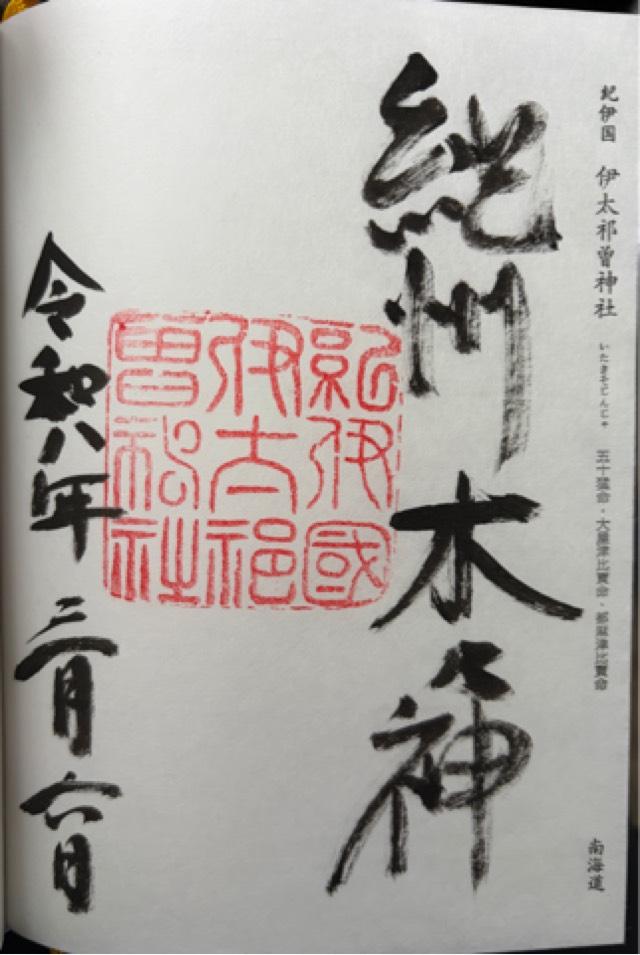 紀伊国 伊太祁曽神社 いたきそじんじゃ 五十猛命・大屋津比賣命・都麻津比賣命 南海道
紀州 木の神
紀伊國
伊太祁
曽神社
令和八年 三月六日